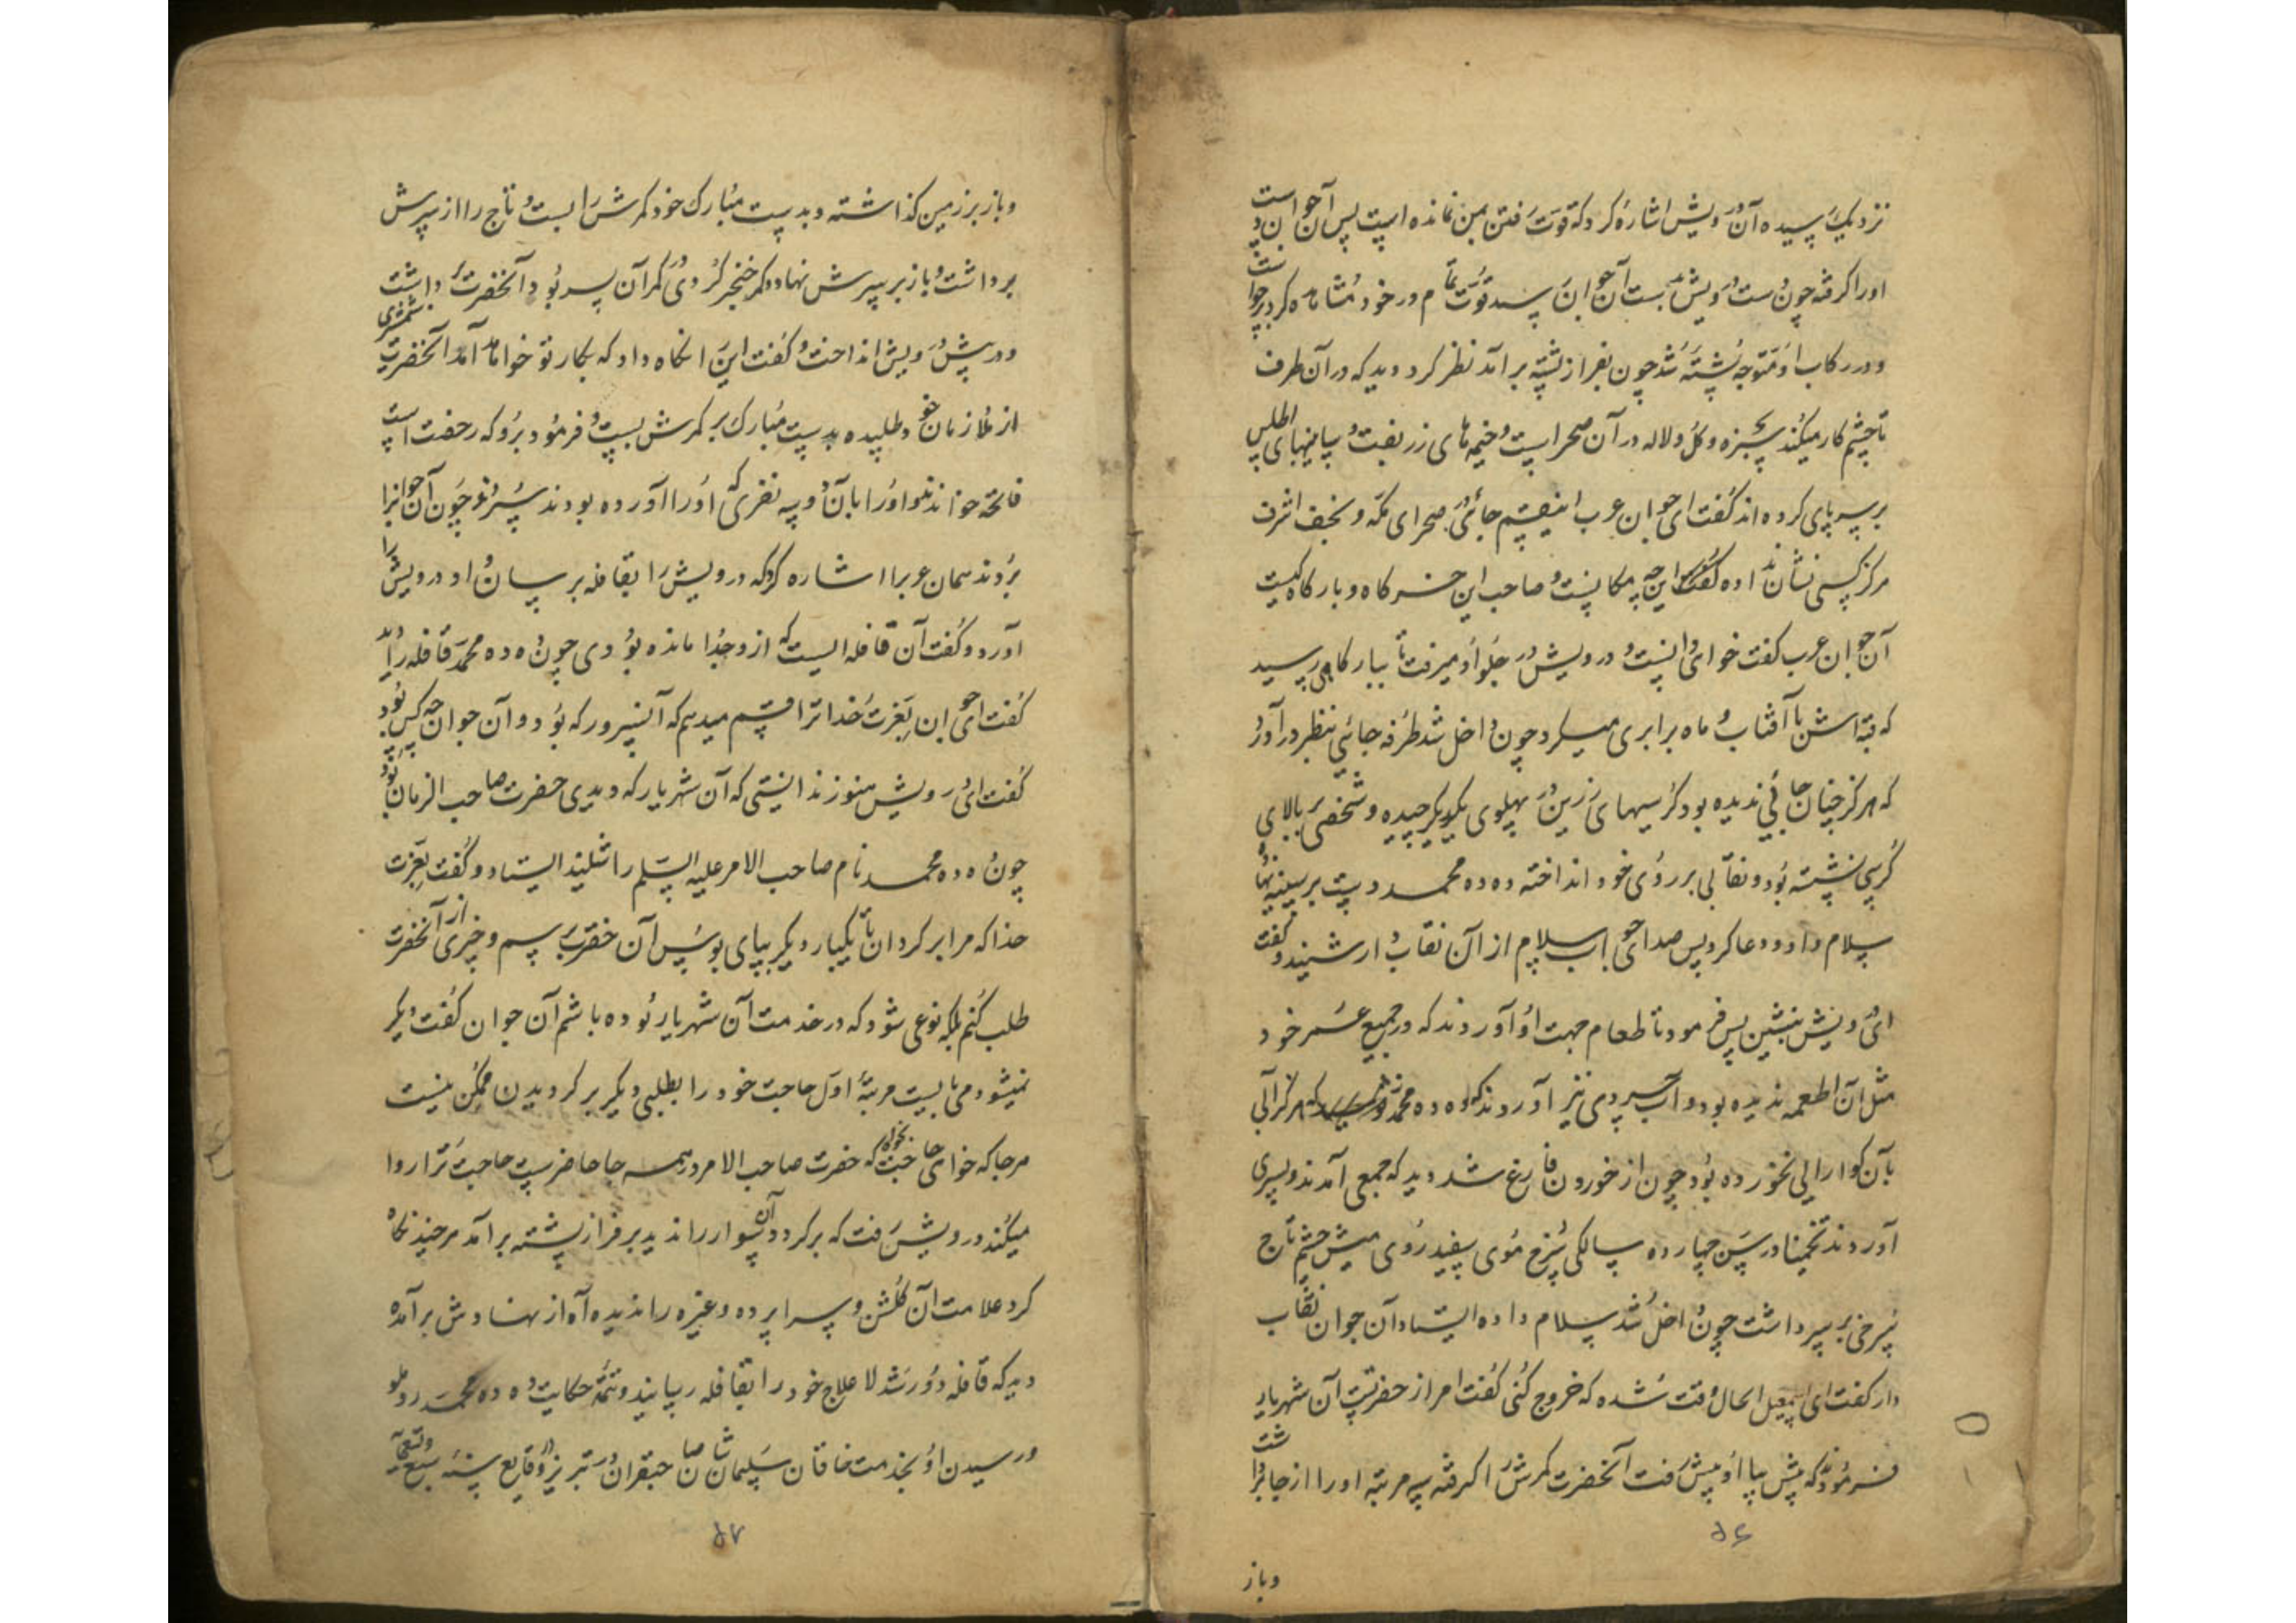 نزدیک رسیده آن درویش اشاره کرد که قوت رفتن بمن نمانده است پس آن جوان دست
اورا گرفته چون دست درویش بدست آن جوان رسید قوت تمام در خود مشاهده کرد برخواست
و در رکاب او متوجه پشته شد چون بفراز پشته برآمد نظر کرد دید که در آن طرف
تا چشم کار میکند سبزه و گل و لاله در آن صحراست و خیمه های زربفت و سایبانهای اطلس
بر سر پای کرده اند گفت ای جوان عرب اینقسم جائی در صحرای مکه و نجف اشرف
هرگز کسی نشان نداده این چه مکانیست و صاحب این خرگاه و بارگاه کیست
آن جوان عرب گفت خواهی دانست و درویش در جلو او میرفت تا ببارگاهی رسید
که قبه اش با آفتاب و ماه برابری میکرد چون داخل شد طرفه جائی بنظر در آورد
که هرگز چنان جائی ندیده بود کرسیهای زرین در پهلوی یکدیگر چیده و شخصی بر بالای
کرسی نشسته بود و نقابی بر روی خود انداخته دده محمد دست بر سینه نهاد
سلام داد و دعا کرد پس صدای جواب سلام از آن نقاب دار شنید و گفت
ای درویش بنشین پس فرمود تا طعام جهت او آوردند که در جمیع عمر خود
مثل آن اطعمه ندیده بود و آب سردی نیز آوردند که دده محمد هرگز آبی
بآن گوارایی نخورده بود چون از خوردن فارغ شد دید که جمعی آمدند و پسری
آوردند تخمینا در سن چهارده سالگی سرخ موی سفید روی میش چشم تاج
سرخی بر سر داشت چون داخل شد سلام داده ایستاد آن جوان نقاب
دار گفت ای اسمعیل الحال وقت شده که خروج کنی گفت امر از حضرتست آن شهریار
فرمودند که پیش بیا او پیش رفت آنحضرت کمرش را گرفته سه مرتبه اورا از جا برداشت
۵۶
و باز
و باز بر زمین گذاشته و بدست مبارک خود کمرش را بست و تاج را از سرش
برداشت و باز بر سرش نهاد و کمر خنجر کردی در کمر آن پسر بود آنحضرت برداشت
و در پیش درویش انداخت و گفت این را نگاه دار که بکار تو خواهد آمد آنحضرت شمشیری
از ملازمان خود طلبیده بدست مبارک بر کمرش بست و فرمود برو که رخصت است
فاتحه خواندند و اورا بآن دو سه نفری که اورا آورده بودند سپردند چون آن جوانرا
بردند همان عربرا اشاره کرد که درویش را بقافله برسان او درویش را
آورد و گفت آن قافله ایست که از و جدا مانده بودی چون دده محمد قافله را دید
گفت ای جوان بعزت خدا ترا قسم میدهم که آنسرور که بود و آن جوان چه کس بود
گفت ای درویش هنوز ندانستی که آن شهریار که دیدی حضرت صاحب الزمان بود
چون دده محمد نام صاحب الامر علیه السلام را شنید ایستاد و گفت بعزت
خدا که مرا برگردان تا یکبار دیگر بپای بوس آن حضرت برسم و چیزی از آنحضرت
طلب کنم بلکه نوعی شود که در خدمت آن شهریار بوده باشم آن جوان گفت دیگر
نمیشود می بایست مرتبهٔ اول حاجت خود را بطلبی دیگر برگردیدن ممکن نیست
هرجا که خواهی حاجت بخواه که حضرت صاحب الامر در همه جا حاضرست حاجت ترا روا
میکند درویش رفت که برگردد آن سوار را ندید بر فراز پشته برآمد هرچند نگاه
کرد علامت آن گلشن و سراپرده و غیره را ندیده آه از نهادش برآمد
دید که قافله دور شد لاعلاج خود را بقافله رسانید و تتمهٔ حکایت دده محمد روملو
و رسیدن او بخدمت خاقان سلیمان شان صاحبقران در تبریز در وقایع سنه سبع و تسعمآئه
۵۷